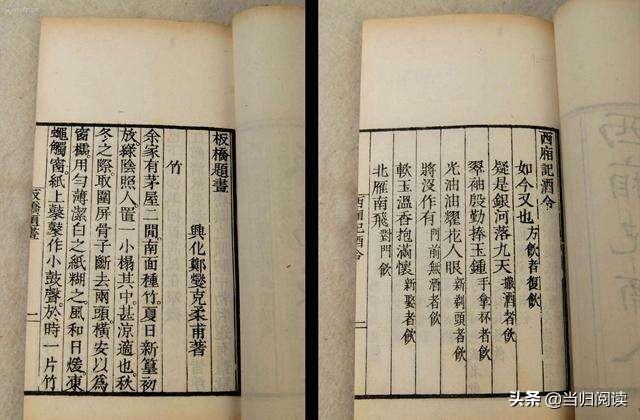 板橋題畫
興化鄭燮克柔甫著
竹
余家有茅屋二間南面種竹。夏日新篁初
放。綠陰照人置一小榻其中。甚涼適也。秋
冬之際。取圍屏骨子斷去兩頭橫安以為
窗櫺。用勻薄潔白之紙糊之。風和日煖凍
蠅觸窗紙上鼕鼕作小鼓聲。於時一片竹
板橋題畫 一
西廂記酒令
如今又也 方飲者復飲
疑是銀河落九天 者飲
翠袖殷勤捧玉鍾 手拿杯者飲
光油油耀花人眼 新剃頭者飲
將沒作有 門前無酒者飲
軟玉溫香抱滿懷 新娶者飲
北雁南飛 對門飲
西廂記酒令 一
头条 @当归阅读